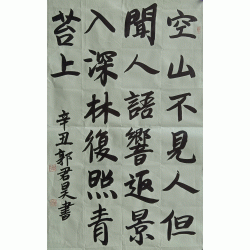 空山不見人但
聞人語響返景
入深林復照青
苔上
辛丑郭君昊書